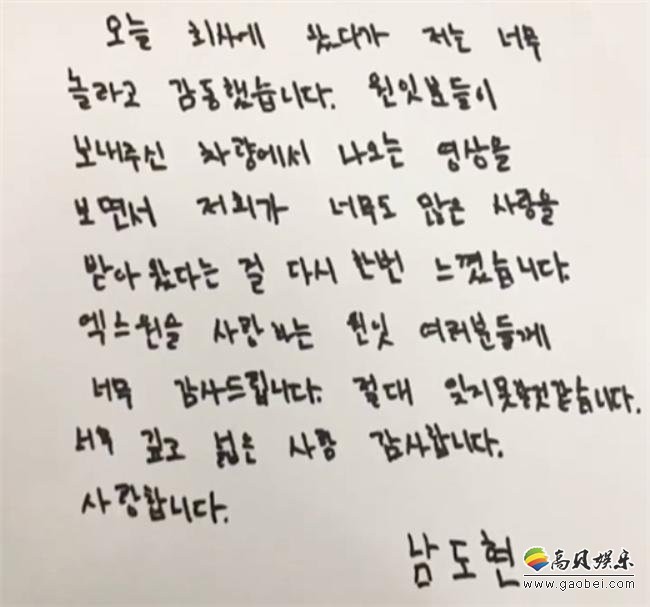 오늘 회사에 왔다가 저는 너무
놀라고 감동했습니다. 원잇분들이
보내주신 차량에서 나오는 영상을
보면서 저희가 너무도 많은 사랑을
받아 왔다는 걸 다시 한번 느꼈습니다.
엑스원을 사랑하는 원잇 여러분들께
너무 감사드립니다. 절대 잊지못할것같습니다.
너무 깊고 넓은 사랑 감사합니다.
사랑합니다.
남도현
高贝娱乐
www.gaobei.com